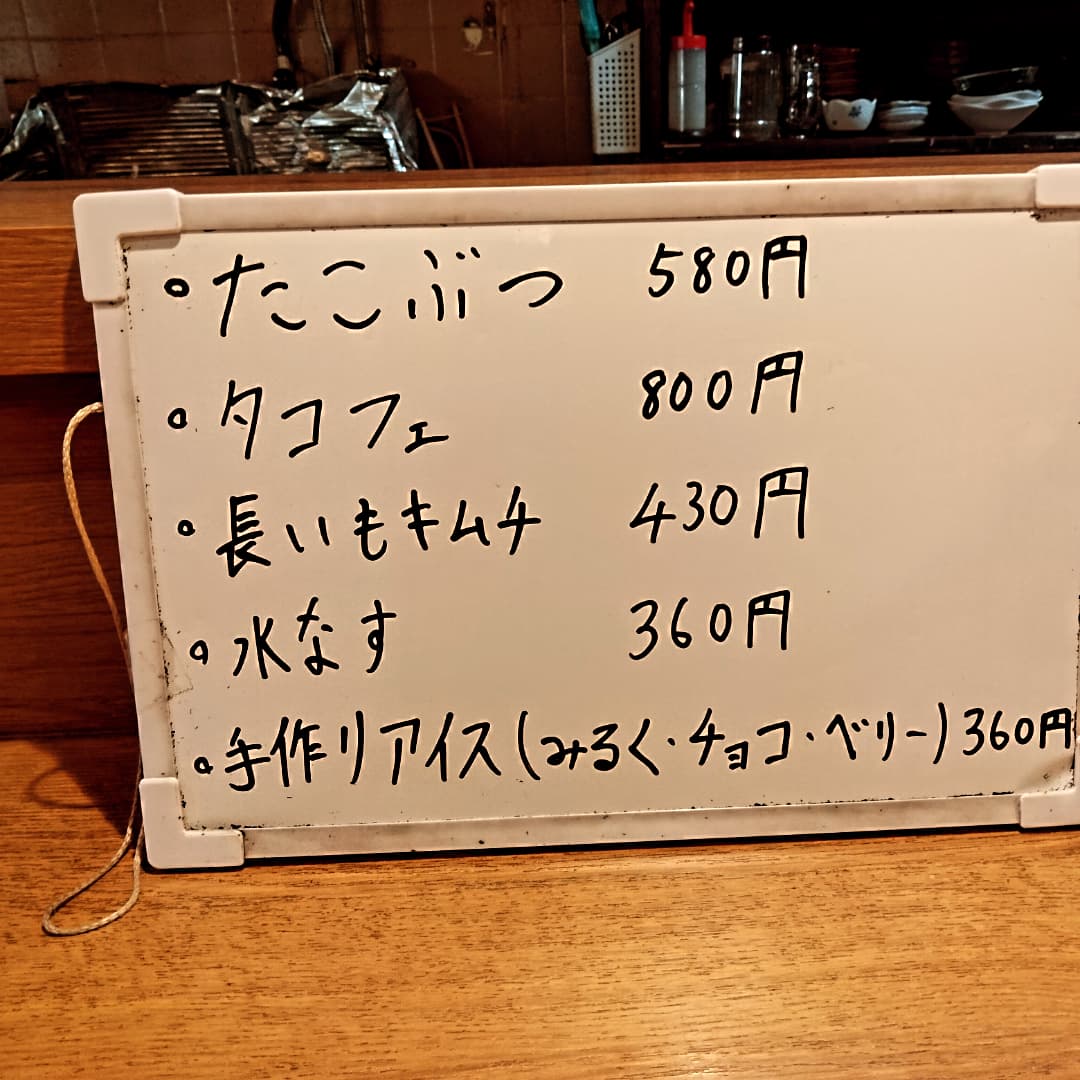 ・たこぶつ 580円
・タコフェ 800円
・長いもキムチ 430円
・水なす 360円
・手作リアイス(みるく・チョコ・ベリー) 360円